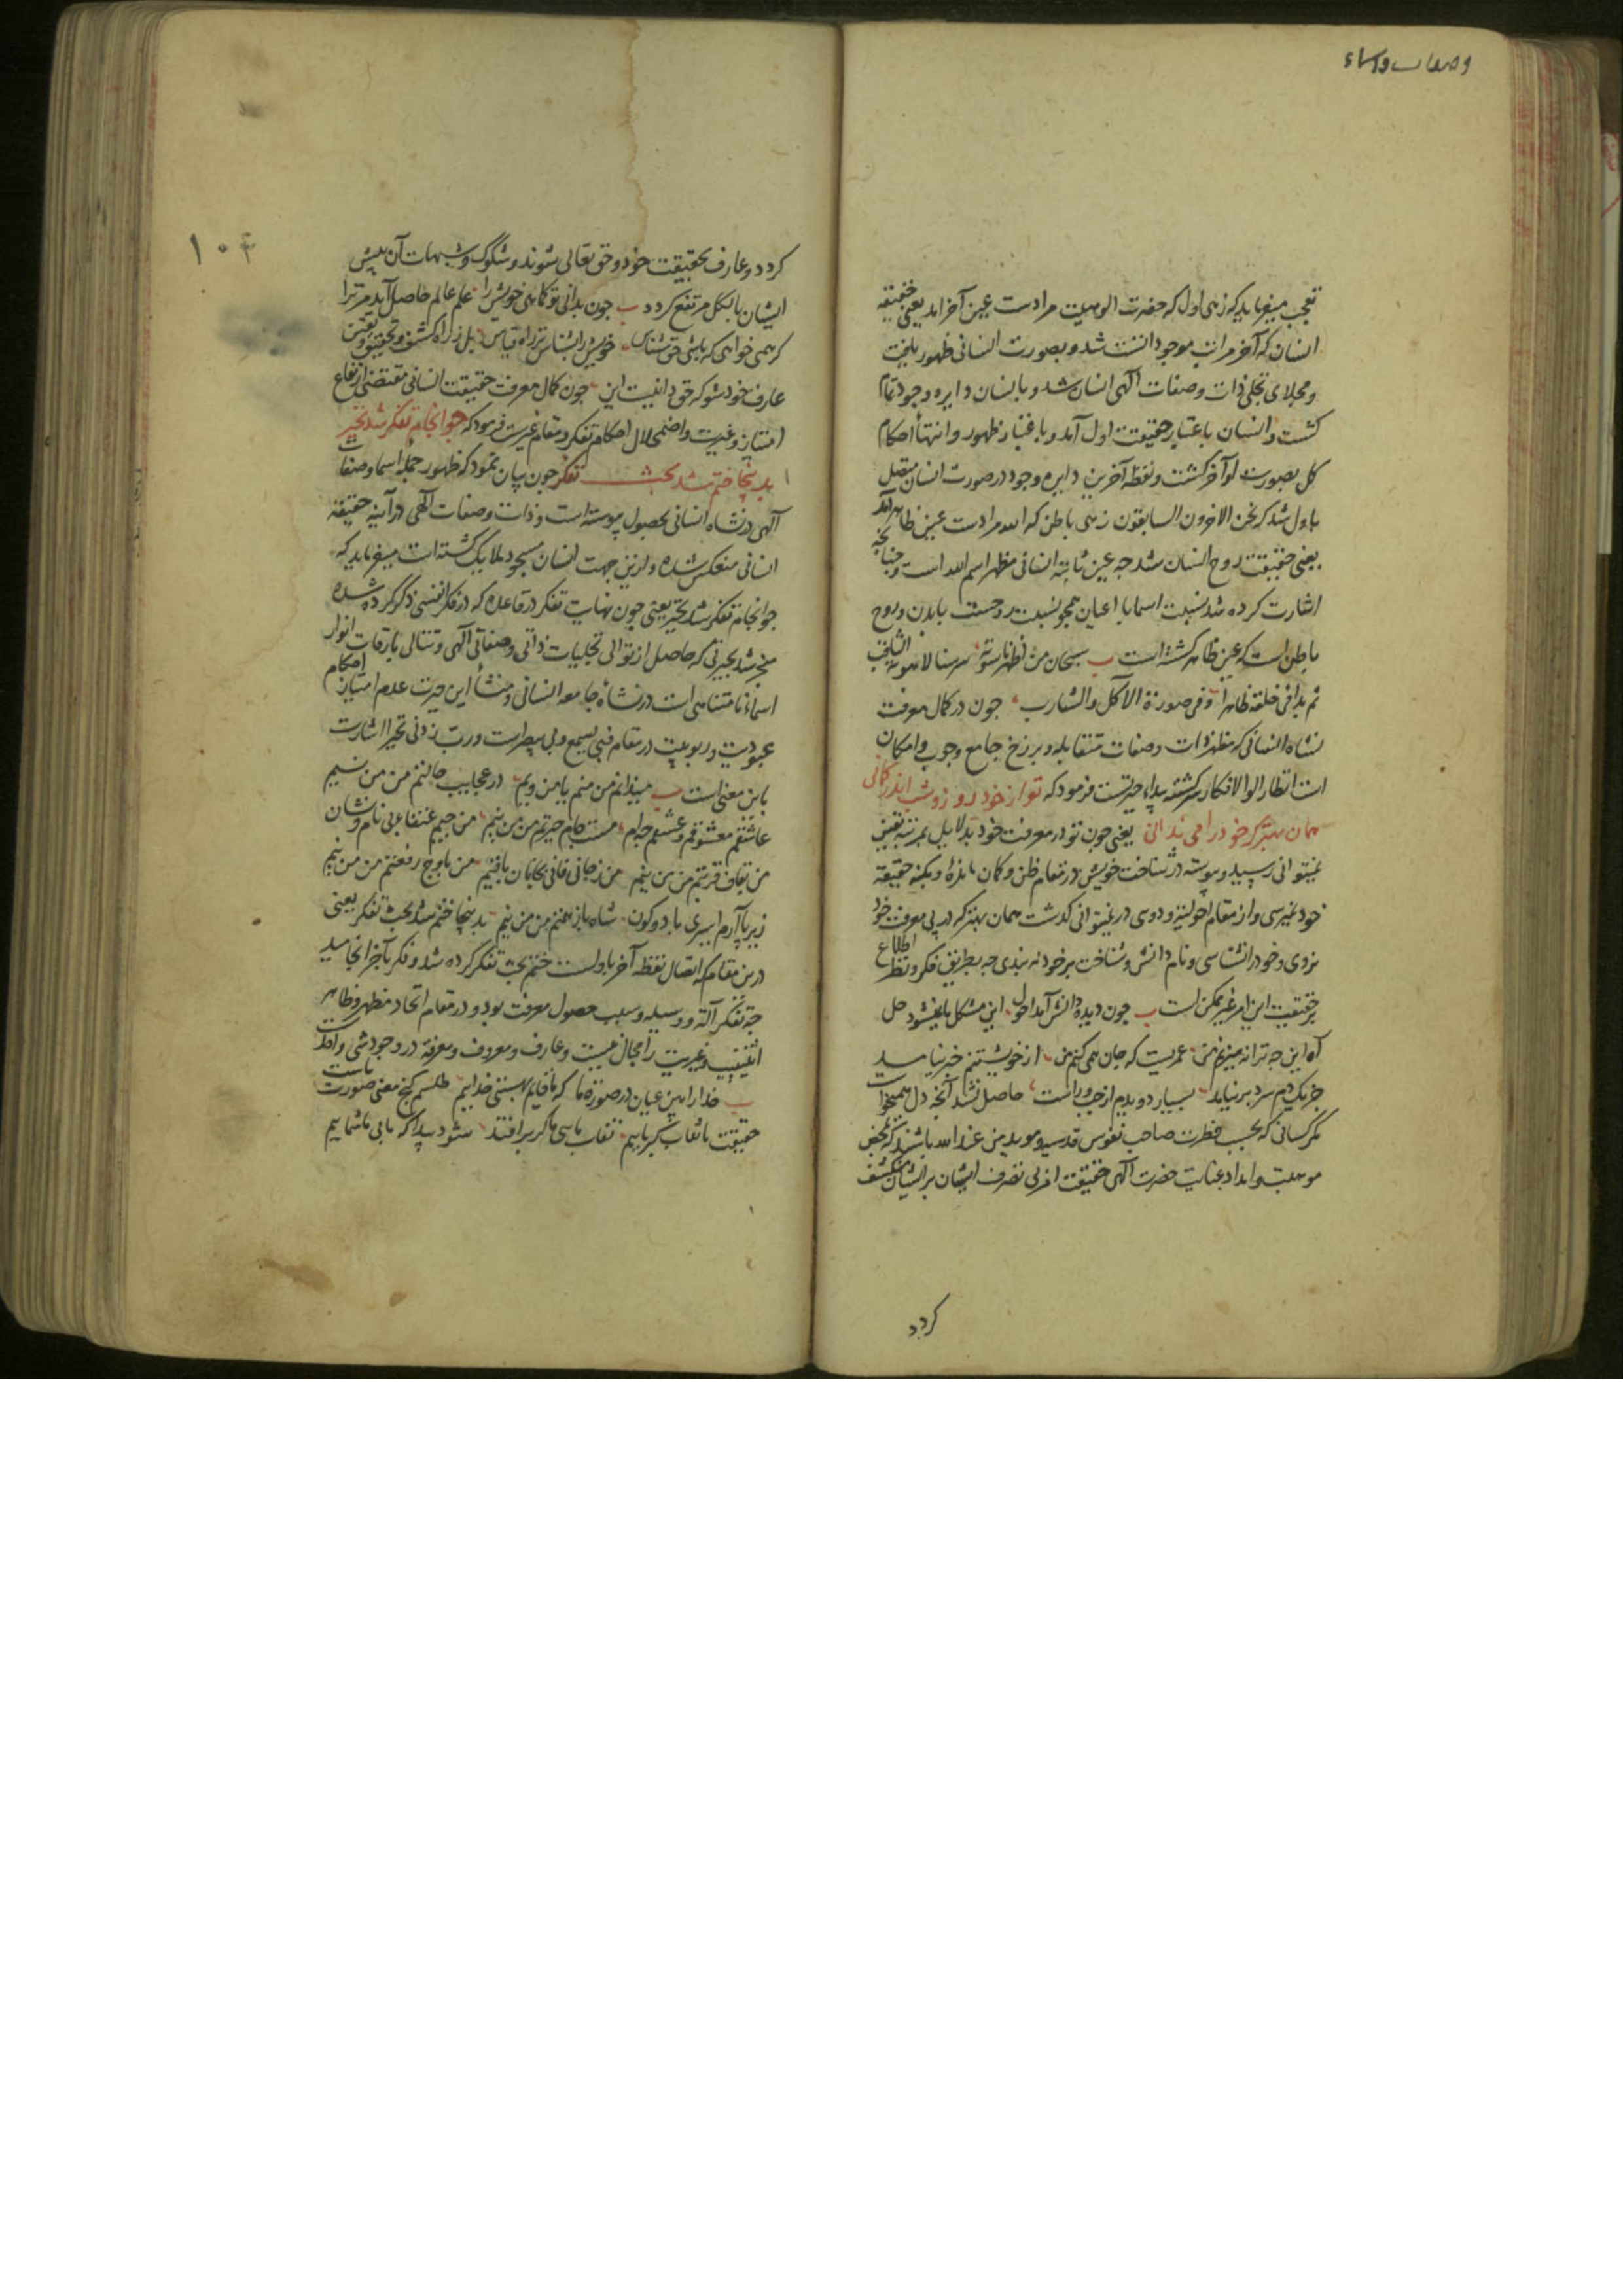 تعجب میفرماید که زهی اول که حضرت الوهیت مرادست عین آخر امد یعنی حقیقة
انسان که آخر مراتب موجودانست شد و بصورت انسانی ظهور یافت
و مجلای تجلی ذات و صفات آلهی انسان شد و بانسان دایره وجود تمام
کشت و انسان باعتبار حقیقت اول آمد و باعتبار ظهور و انتهأ احکام
کل بصورت او آخر کشت و نقطه آخرین دایره وجود در صورت انسان متصل
باول شد که نحن الاخرون السابقون زهی باطن که الله مرادست عین ظاهر آمد
یعنی حقیقت روح انسان شد جه عین ثابته انسانی مظهر اسم الله است و جنانجه
اشارت کرده شد نسبت اسما با اعیان همجو نسبت روحست بابدن و روح
باطن است که عین ظاهر کشته است ب سبحان من اظهر ناسوته سر سنا لاهوته الثاقب
ثم بدا فی خلقه ظاهرا و فی صورة الآکل و الشارب جون در کمال معرفت
نشاه انسانی که مظهر ذات و صفات متقابله و برزخ جامع وجوب و امکان
است انظار اولو الافکار سر کشته بیداء حیرتست فرمود که تو از خود روز و شب اندر کمانی
همان بهتر که خود را می ندانی یعنی جون تو در معرفت خود بدلایل بمرتبه یقین
نمیتوانی رسید و پیوسته در شناخت خویش در مقام ظن و کمان مانده و بکنه حقیقة
خود نمیرسی و از مقام احولیة و دوی در نمیتوانی کذشت همان بهتر که در پی معرفت خود
نروی و خود را نشناسی و نام دانش و شناخت بر خود نه بندی جه بطریق فکر و نظر اطلاع
بر حقیقت این امر غیر ممکن است ب جون دیده دانش آمد احول این مشکل ما نمیشود حل
آه این جه ترانه میزنم من عمریست که جان همی کنم من از خویشتنم خبر نیامد
جز یک دم سرد بر نیامد بسیار دویدم از جب و راست حاصل نشد آنجه دل همیخواست
مکر کسانی که بحسب فطرت صاحب نفوس قدسیه و مویدین عند الله باشند که بمحض
موهبت و امداد عنایت حضرت آلهی حقیقت امر بی تصرف ایشان بر ایشان منکشف
کردد
کردد و عارف بحقیقت خود و حق تعالی شوند و شکوک و شبهات آن پیش
ایشان بالکل مرتفع کردد ب جون بدانی تو کماهی خویش را علم عالم حاصل آید مر ترا
کر همی خواهی که باشی حق شناس خویش را بشناس نز راه قیاس بل ز راه کشف و تحقیق و یقین
عارف خود شو که حق دانیست این جون کمال معرفت حقیقت انسانی مقتضی ارتفاع
امتیاز و غیریت و اضمحلال احکام تفکر و مقام غیریت فرمود که جو انجام تفکر شد تحیر
بدینجا ختم شد بحث تفکر جون بیان نمود که ظهور جمله اسما و صفات
آلهی در نشاه انسانی بحصول پیوسته است و ذات و صفات آلهی در آینه حقیقة
انسانی منعکس شده و ازین جهت انسان مسجود ملایک کشته است میفرماید که
جو انجام تفکر شد تحیر یعنی جون نهایت تفکر در قاعده که در فکر انفسی ذکر کرده شده
منجر شد بحیرتی که حاصل از توالی تجلیات ذاتی و صفاتی آلهی و تتالی بارقات انوار
اسماء نا متناهی است در نشاه جامعه انسانی و منشأ این حیرت عدم امتیاز احکام
عبودیت و ربوبیت در مقام فبی یسمع و بی یبصر است و رب زدنی تحیرا اشارت
باین معنی است ب میندانم من منم یا من ویم در عجایب حالتم من من نیم
عاشقم معشوقم و عشقم جه ام مست جام حیرتم من من نیم من جیم عنقاء بی نام و نشان
من بقاف قربتم من من نیم من ز جانی فانی بجانان باقیم من باوج رفعتم من من نیم
زیر پا آرم اسیری با دو کون شاه باز همتم من من نیم بدینجا ختم شد بحث تفکر یعنی
درین مقام که اتصال نقطه آخر باولست ختم بحث تفکر کرده شد و فکر بآخر انجامید
جه تفکر آلة و وسیله و سبب حصول معرفت بود و در مقام اتحاد مظهر و ظاهر
اثنینیت و غیریت را مجال نیست و عارف و معروف و معرفة در وجود شی واحد است
ب خدا را بین عیان در صورة ما که ما قایم بهستی خداییم طلسم کنج معنی صورت ماست
حقیقت ما نقاب کبریاییم نقاب ما سی ما کر بر افتد شود پیدا که ما بی ما شماییم